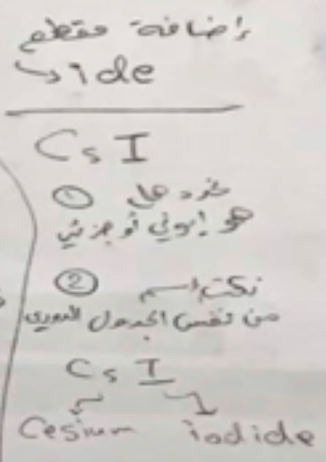 إضافة مقطع
ide
CsI
① نحدد هل
هو أيوني أو جزيئي
② نكتب اسم
من نفس الجدول الدوري
CsI
Cesium iodide